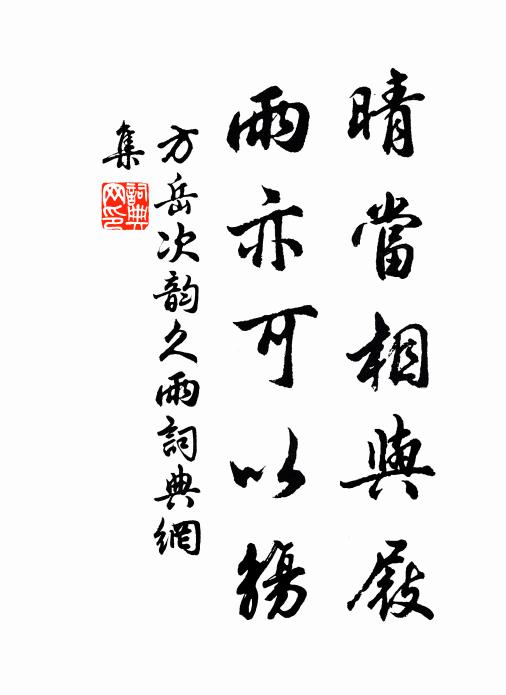 晴當相與屐
雨亦可以觴
方岳次韵久雨詞典網
集
詞典
网印